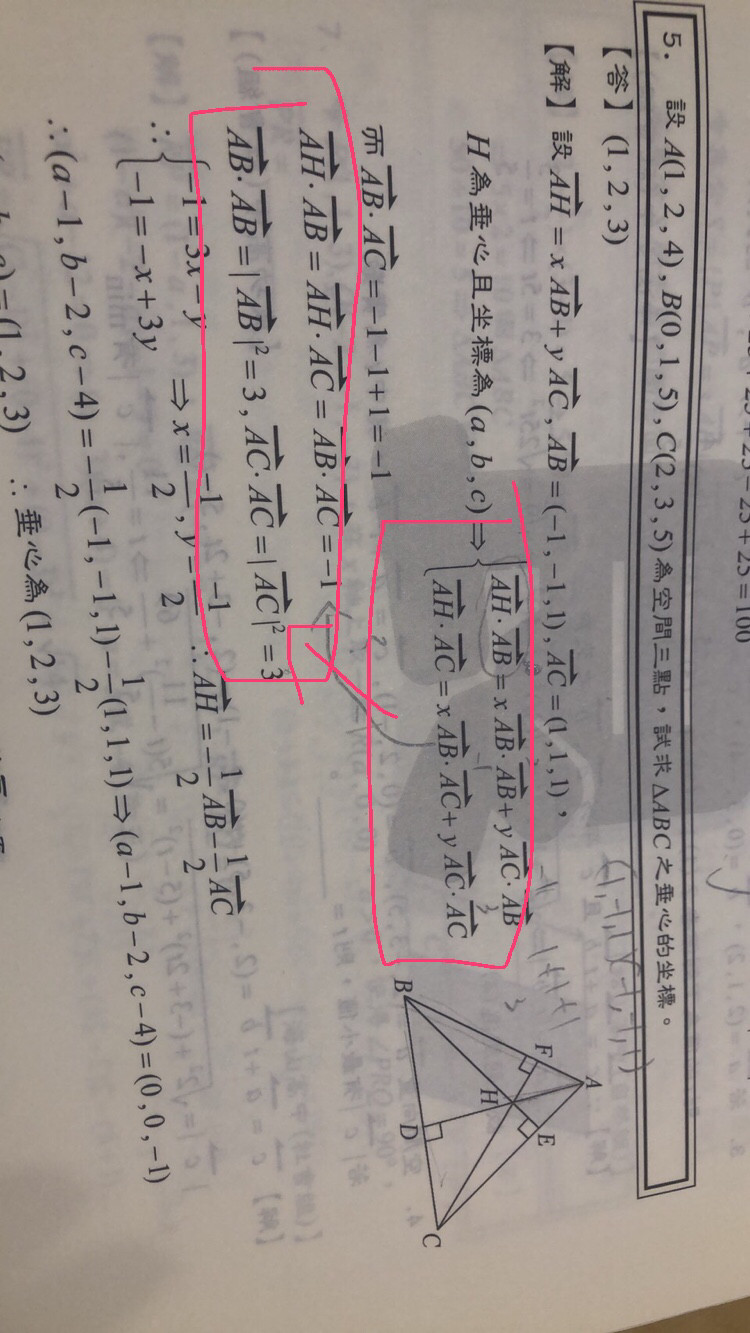 5. 設 A(1, 2, 4), B(0, 1, 5), C(2, 3, 5) 為空間三點，試求 ΔABC 之垂心的坐標。
【答】(1, 2, 3)
【解】設 $\overrightarrow{AH} = x\overrightarrow{AB} + y\overrightarrow{AC}$, $\overrightarrow{AB} = (-1, -1, 1)$, $\overrightarrow{AC} = (1, 1, 1)$,
H 為垂心且坐標為 (a, b, c) ⇒ { $\overrightarrow{AH}\cdot\overrightarrow{AB} = x\overrightarrow{AB}\cdot\overrightarrow{AB} + y\overrightarrow{AC}\cdot\overrightarrow{AB}$
$\overrightarrow{AH}\cdot\overrightarrow{AC} = x\overrightarrow{AB}\cdot\overrightarrow{AC} + y\overrightarrow{AC}\cdot\overrightarrow{AC}$
而 $\overrightarrow{AB}\cdot\overrightarrow{AC} = -1-1+1 = -1$
$\overrightarrow{AH}\cdot\overrightarrow{AB} = \overrightarrow{AH}\cdot\overrightarrow{AC} = \overrightarrow{AB}\cdot\overrightarrow{AC} = -1$
$\overrightarrow{AB}\cdot\overrightarrow{AB} = |\overrightarrow{AB}|^2 = 3$, $\overrightarrow{AC}\cdot\overrightarrow{AC} = |\overrightarrow{AC}|^2 = 3$
∴ { -1 = 3x - y
-1 = -x + 3y ⇒ $x = \frac{-1}{2}$, $y = \frac{-1}{2}$ ∴ $\overrightarrow{AH} = -\frac{1}{2}\overrightarrow{AB} - \frac{1}{2}\overrightarrow{AC}$
∴ $(a-1, b-2, c-4) = -\frac{1}{2}(-1, -1, 1) - \frac{1}{2}(1, 1, 1)$ ⇒ $(a-1, b-2, c-4) = (0, 0, -1)$
c) = (1, 2, 3) ∴ 垂心為 (1, 2, 3)
A
F
E
H
B
D
C